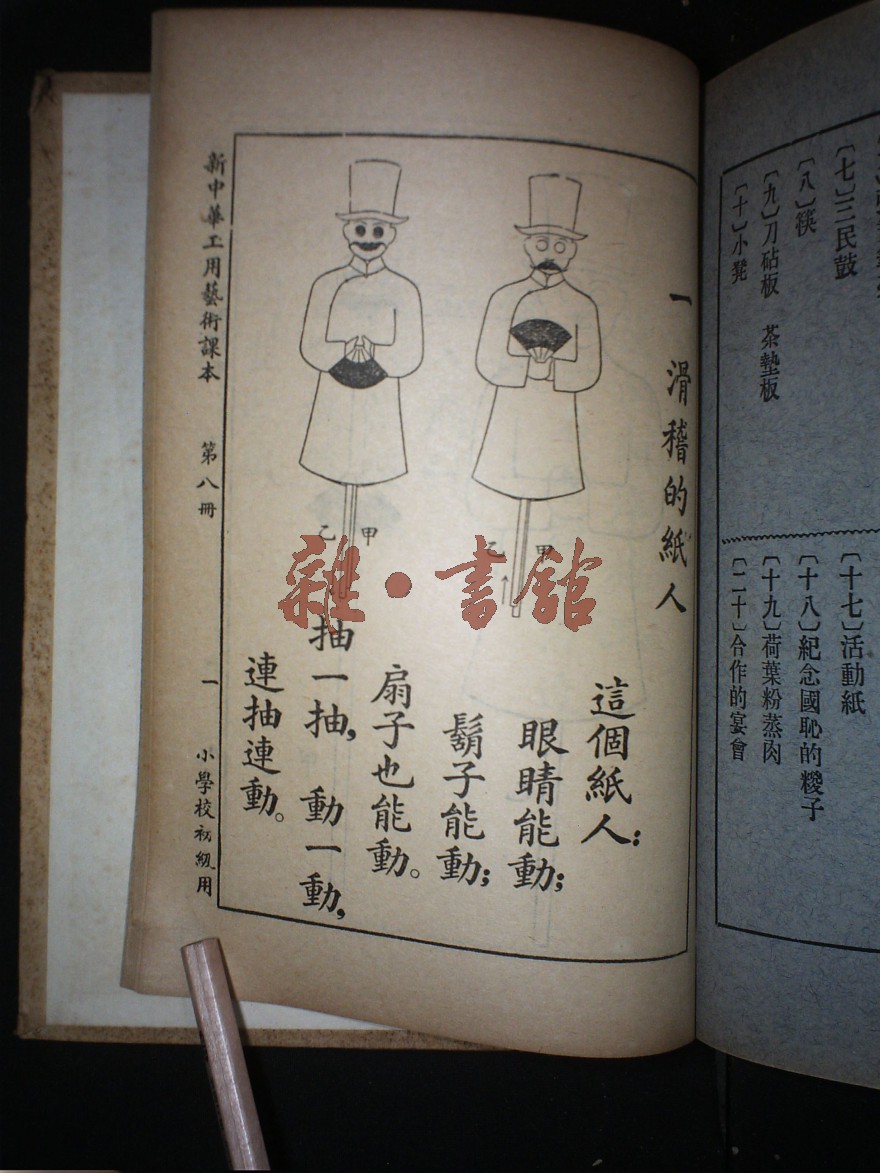 〔七〕三民鼓
〔八〕筷
〔九〕刀砧板　茶墊板
〔十〕小凳
〔十七〕活動紙
〔十八〕紀念國恥的糉子
〔十九〕荷葉粉蒸肉
〔二十〕合作的宴會
一　滑稽的紙人
甲
乙
甲
乙
這個紙人：
眼睛能動；
鬍子能動；
扇子也能動。
抽一抽，動一動，
連抽連動。
新中華工用藝術課本　第八冊　一　小學校初級用
雜·書館